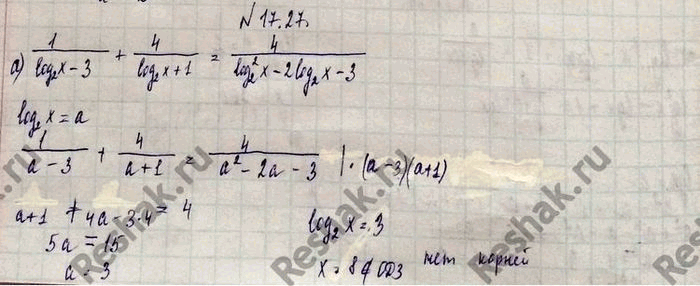 № 17.27.
а) 1/(log₂x − 3) + 4/(log₂x + 1) = 4/(log₂²x − 2log₂x − 3)
log₂x = a
1/(a − 3) + 4/(a + 1) = 4/(a² − 2a − 3) | · (a − 3)(a + 1)
a + 1 + 4a − 3·4 = 4
5a = 15
a = 3
log₂x = 3
x = 8 ∉ ОДЗ нет корней
Reshak.ru
Reshak.ru
Reshak.ru